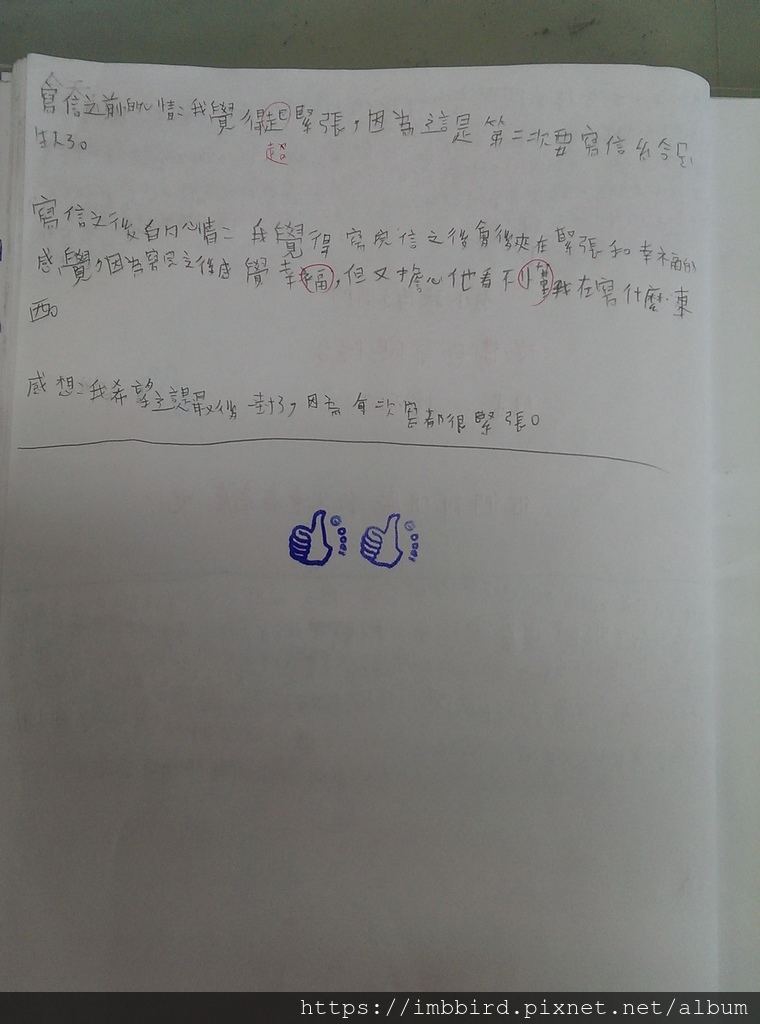 寫信之前的心情:我覺得起緊張,因為這是第二次要寫信
超
生人了。
寫信之後的心情:我覺得寫完信之後會後夾在緊張和幸福的
感覺,因為寫完之後感覺幸福,但又擔心他看不懂我在寫什麼東
西。
感想:我希望這是最後一封了,因為每次寫都很緊張。
https://imbbird.pixnet.net/album